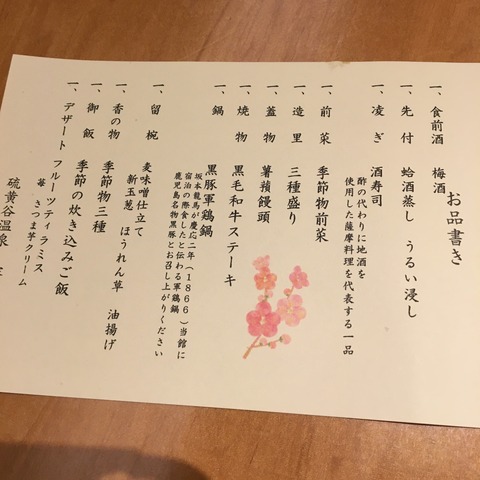 お品書き
一、食前酒 梅酒
一、先付 蛤酒蒸し うるい浸し
一、凌ぎ 酒寿司
酢の代わりに地酒を
使用した薩摩料理を代表する一品
一、前菜 季節物前菜
一、造里 三種盛り
一、蓋物 薯蕷饅頭
一、焼物 黒毛和牛ステーキ
一、鍋 黒豚軍鶏鍋
坂本龍馬が慶応二年（1866）当館に
宿泊の際食したと伝わる軍鶏鍋
鹿児島名物黒豚とお召し上がりください
一、留椀 麦味噌仕立て
新玉葱 ほうれん草 油揚げ
一、香の物 季節物三種
一、御飯 季節の炊き込みご飯
一、デザート フルーツティラミス
苺 さつま芋クリーム
硫黄谷温泉